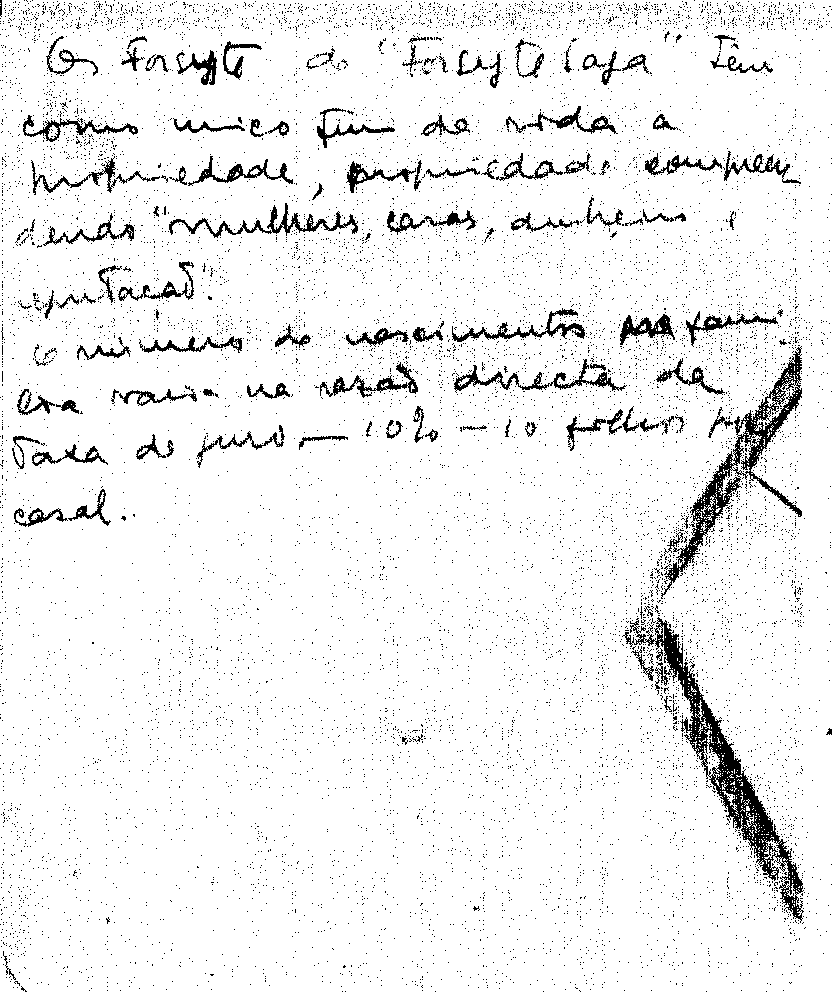 Os Forsyte do "Forsyte Saga" têm
como unico fim da vida a
propriedade, propriedade compreen_
dendo "mulheres, casas, dinheiro e
reputação".
O número de nascimentos por fami
lia varia na razaõ directa da
taxa de juro, — 10% — 10 filhos por
casal..